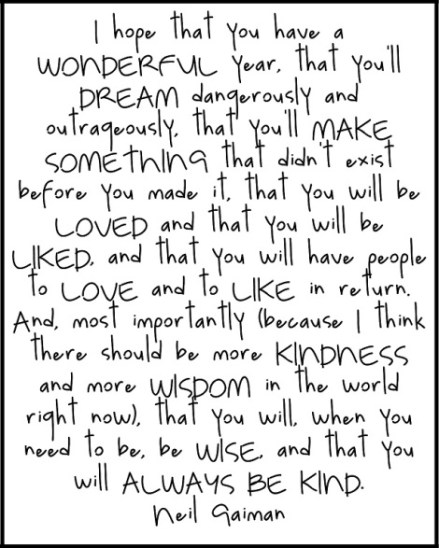 I hope that you have a
WONDERFUL year, that you'll
DREAM dangerously and
outrageously, that you'll MAKE
SOMETHING that didn't exist
before you made it, that you will be
LOVED and that you will be
LIKED, and that you will have people
to LOVE and to LIKE in return.
And, most importantly (because I think
there should be more KINDNESS
and more WISDOM in the world
right now), that you will, when you
need to be, be WISE, and that you
will ALWAYS BE KIND.
Neil Gaiman